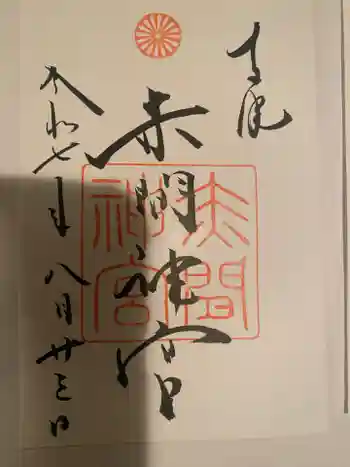 奉拝
赤間神宮
令和七年八月廿三日
赤間
神宮